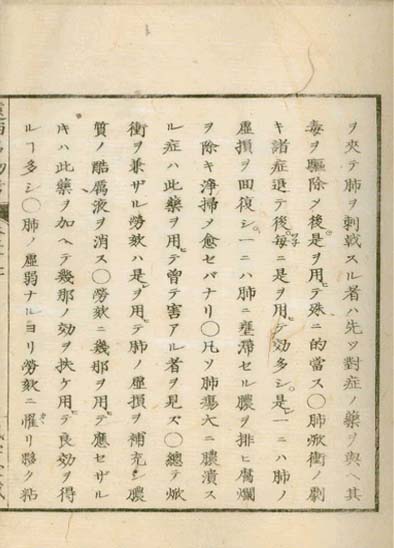 ヲ夾テ肺ヲ刺戟スル者ハ先ツ對症ノ藥ヲ與ヘ其
毒ヲ驅除メ後。是ヲ用テ殊ニ的當ス〇肺焮衝ノ劇
キ諸症退テ後。每ニ是ヲ用テ効多シ。是レ一ニハ肺ノ
虛損ヲ回復シ。一ニハ肺ニ壅滯セル膿ヲ排ヒ腐爛
ヲ除キ淨掃メ愈セバナリ〇凡ソ肺瘍大ニ膿潰ス
ル症ハ此藥ヲ用テ曾テ害アル者ヲ見ズ〇總テ焮
衝ヲ兼ザル勞欬ハ是ヲ用テ肺ノ虛損ヲ補充シ膿
質ノ酷厲液ヲ消ス〇勞欬ニ幾那ヲ用テ應セザル
キハ此藥ヲ加ヘテ幾那ノ効ヲ扶ケ用テ良効ヲ得
ルヿ多シ〇肺ノ虛弱ナルヨリ勞欬ニ罹リ夥ク粘